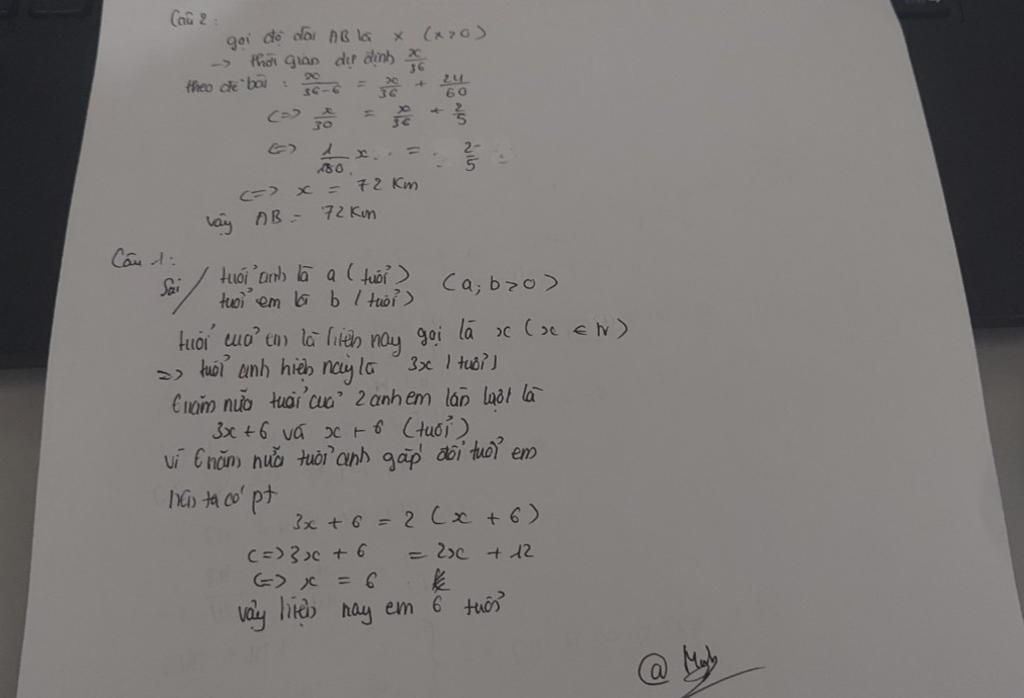 Câu 2:
gọi độ dài AB là x (x>0)
→ thời gian dự định x/36
theo đề bài: x/36-6 = x/36 + 24/60
<=> x/30 = x/36 + 2/5
<=> 1/180 x = 2/5
<=> x = 72 Km
vậy AB = 72 Km
Câu 1:
Sai / tuổi anh là a (tuổi)
tuổi em là b (tuổi) (a; b>0)
tuổi của em là hiện nay gọi là x (x ∈ N)
=> tuổi anh hiện nay là 3x (tuổi)
6 năm nữa tuổi của 2 anh em lần lượt là
3x+6 và x+6 (tuổi)
vì 6 năm nữa tuổi anh gấp đôi tuổi em
nên ta có pt
3x + 6 = 2 (x + 6)
<=> 3x + 6 = 2x + 12
<=> x = 6
vậy hiện nay em 6 tuổi
@